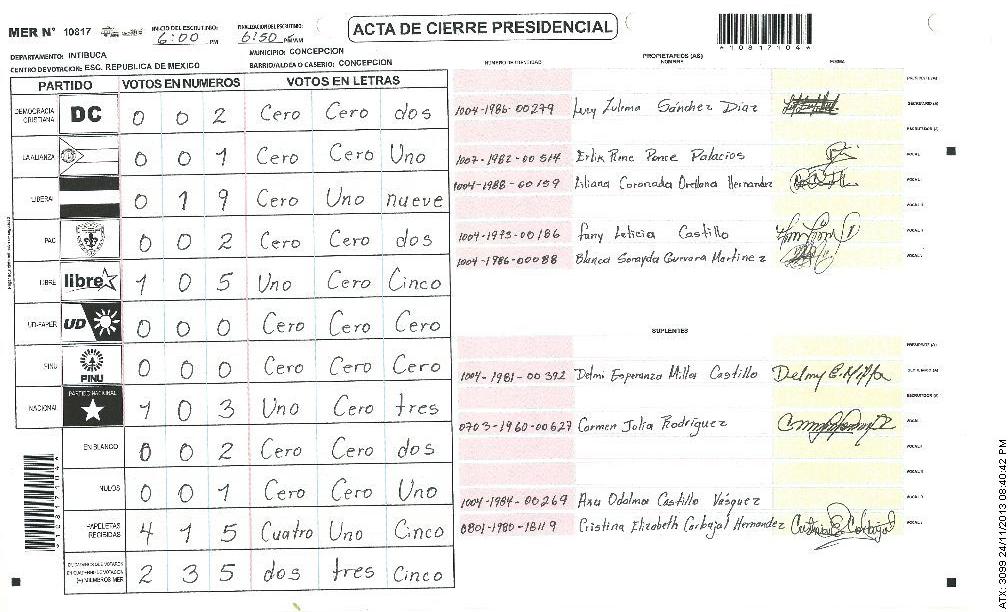 MER N° 10817
INICIO DEL ESCRUTINIO: 6:00 PM
FINALIZACION DEL ESCRUTINIO: 6:50 PM
ACTA DE CIERRE PRESIDENCIAL
*10817104*
DEPARTAMENTO: INTIBUCA
MUNICIPIO: CONCEPCION
CENTRO DE VOTACION: ESC. REPUBLICA DE MEXICO
BARRIO/ALDEA O CASERIO: CONCEPCION
PARTIDO VOTOS EN NUMEROS VOTOS EN LETRAS
DEMOCRACIA CRISTIANA DC 0 0 2 Cero Cero dos
LA ALIANZA 0 0 1 Cero Cero Uno
LIBERAL 0 1 9 Cero Uno nueve
PAC 0 0 2 Cero Cero dos
LIBRE libre 1 0 5 Uno Cero Cinco
UD-FAPER UD 0 0 0 Cero Cero Cero
PINU PINU 0 0 0 Cero Cero Cero
NACIONAL PARTIDO NACIONAL 1 0 3 Uno Cero tres
EN BLANCO 0 0 2 Cero Cero dos
NULOS 0 0 1 Cero Cero Uno
PAPELETAS RECIBIDAS 4 1 5 Cuatro Uno Cinco
2 3 5 dos tres Cinco
PROPIETARIOS (AS)
NUMERO DE IDENTIDAD NOMBRE FIRMA
1004-1986-00279 Lucy Zulema Sánchez Díaz
1007-1982-00514 Ponce Palacios
1004-1988-00159 Liliana Coronada Orellana Hernandez
1004-1973-00186 Fany Leticia Castillo
1004-1986-00088 Blanca Sorayda Guevara Martinez
SUPLENTES
1004-1981-00392 Delmi Esperanza Milla Castillo
0703-1960-00627 Carmen Julia Rodríguez
1004-1984-00269 Ana Odalma Castillo Vásquez
0801-1980-18119 Cristina Elizabeth Carbajal Hernandez
ATX: 3099 24/11/2013 08:40:42 PM